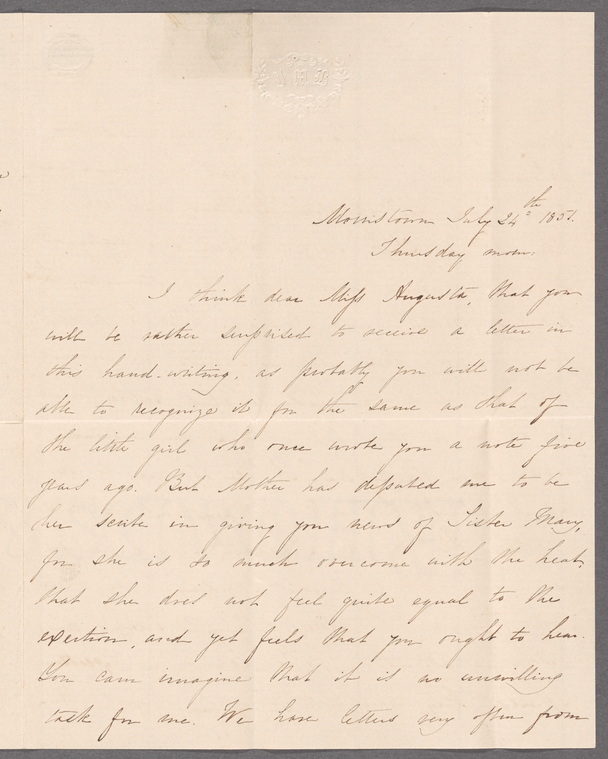 Morristown July 24th 1851.
Thursday morn:
I think dear Miss Augusta, that you
will be rather surprised to receive a letter in
this hand-writing, as probably you will not be
able to recognize it for the same as that of
the little girl who once wrote you a note five
years ago. But Mother has deputed me to be
her scribe in giving you news of Sister Mary,
for she is so much overcome with the heat,
that she does not feel quite equal to the
exertion, and yet feels that you ought to hear.
You can imagine that it is no unwilling
task for me. We have letters very often from